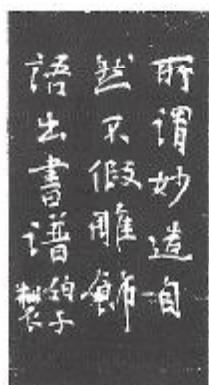 所谓妙造自
然不假雕飾
語出書谱
伯子
製